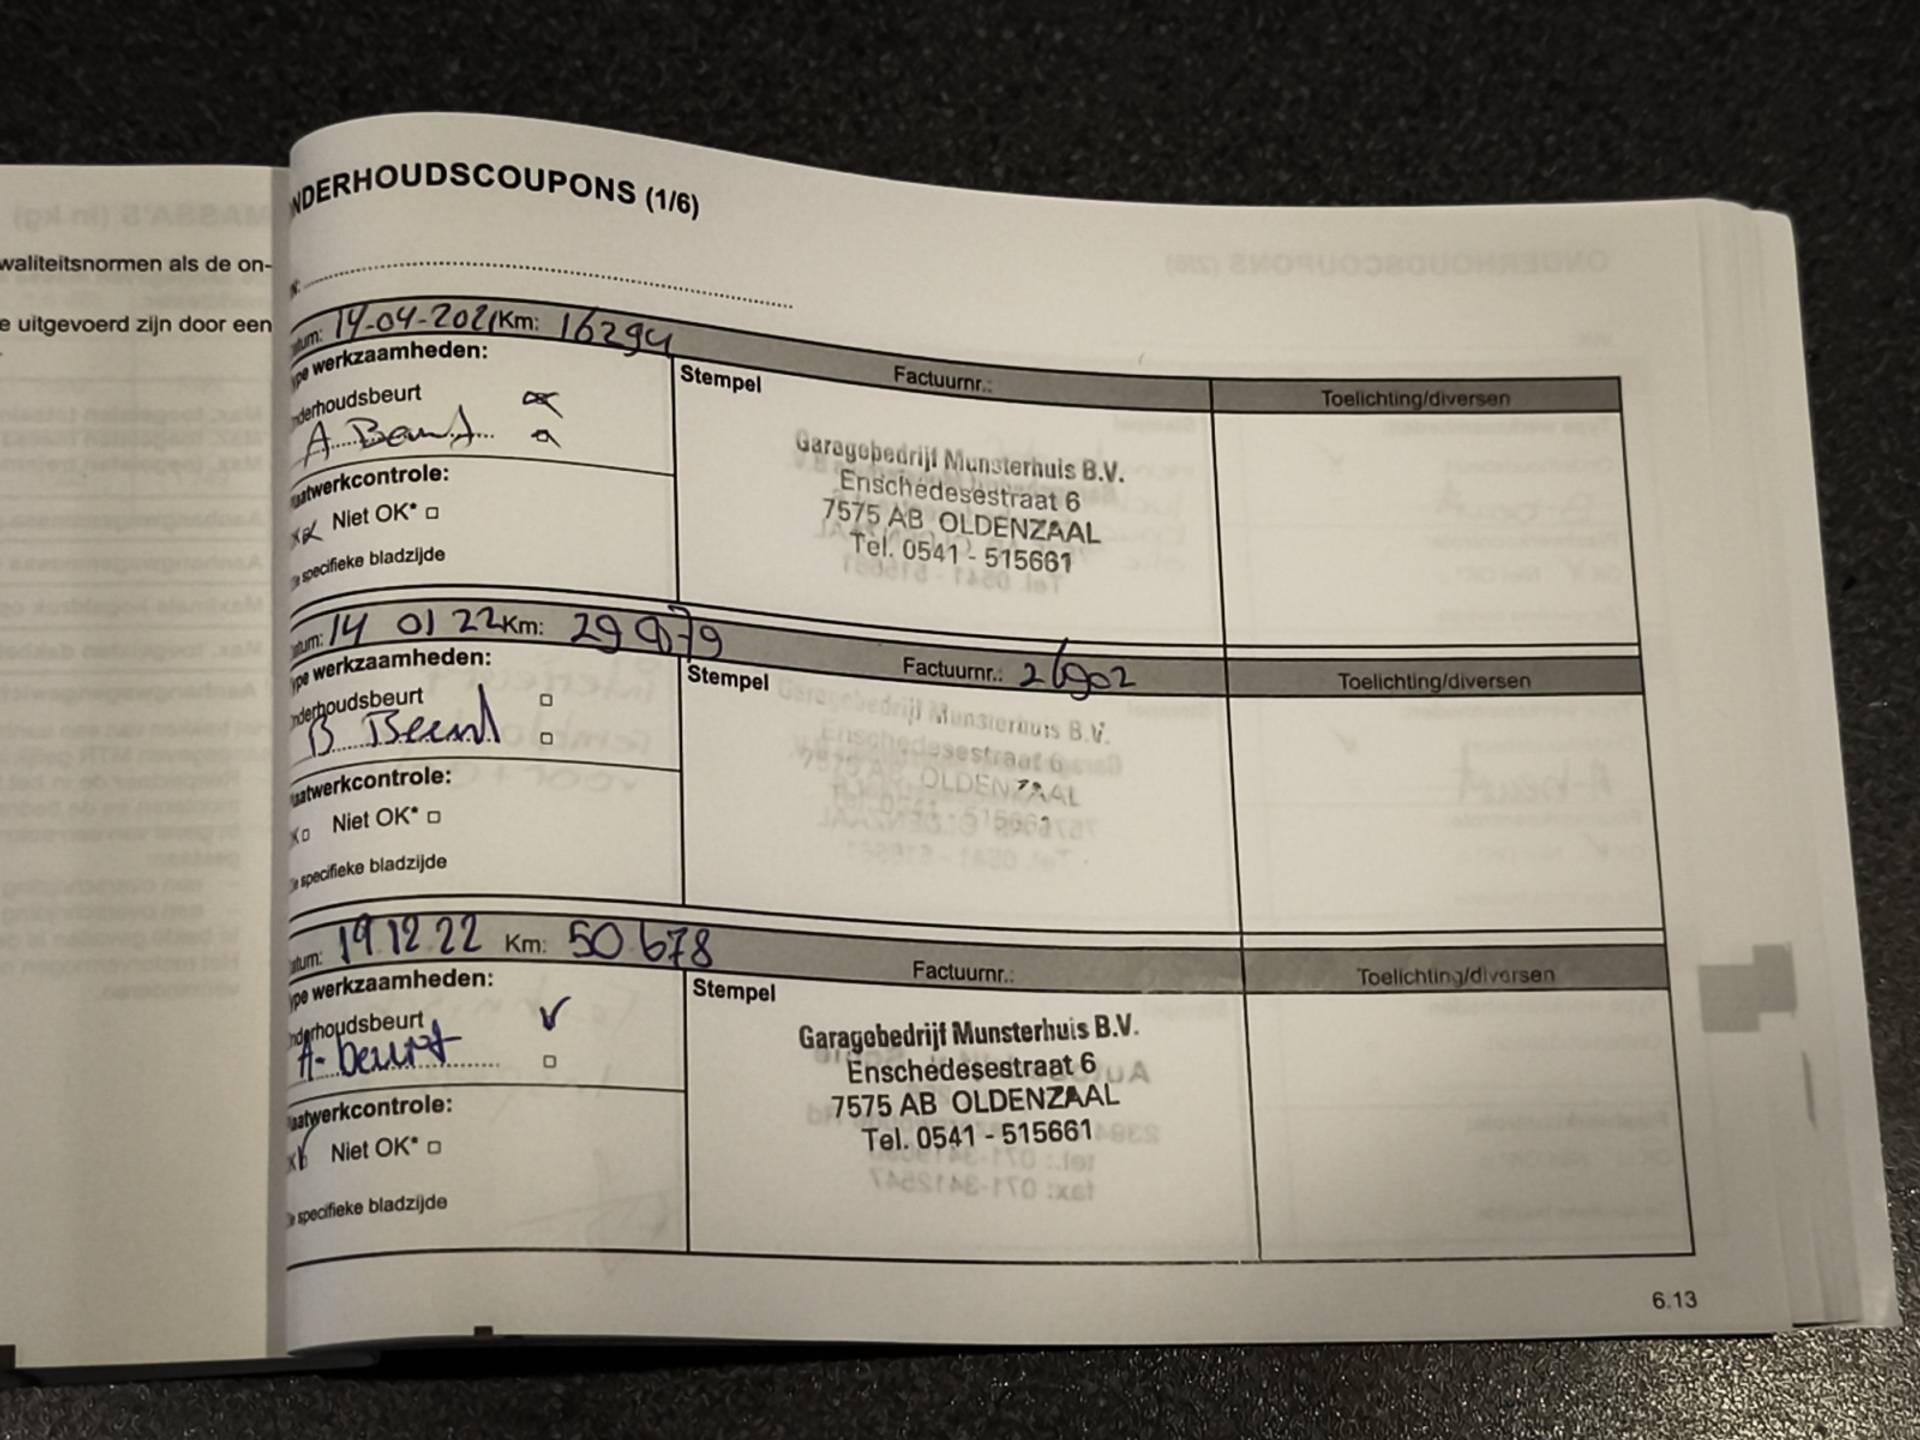 waliteitsnormen als de on-
e uitgevoerd zijn door een
NDERHOUDSCOUPONS (1/6)
atum: 14-04-2021 Km: 16294
ype werkzaamheden:
Stempel
Factuurnr.:
Toelichting/diversen
nderhoudsbeurt
A Beurt
Garagebedrijf Munsterhuis B.V.
Enschedesestraat 6
7575 AB OLDENZAAL
Tel. 0541 - 515661
aatwerkcontrole:
Niet OK*
specifieke bladzijde
atum: 14 01 22 Km: 29 979
ype werkzaamheden:
Stempel
Factuurnr.: 26902
Toelichting/diversen
nderhoudsbeurt
B Beurt
Garagebedrijf Munsterhuis B.V.
Enschedesestraat 6
7575 AB OLDENZAAL
Tel. 0541 - 515661
aatwerkcontrole:
Niet OK*
specifieke bladzijde
atum: 19.12.22 Km: 50.678
ype werkzaamheden:
Stempel
Factuurnr.:
Toelichting/diversen
nderhoudsbeurt
A-beurt
Garagebedrijf Munsterhuis B.V.
Enschedesestraat 6
7575 AB OLDENZAAL
Tel. 0541 - 515661
aatwerkcontrole:
Niet OK*
specifieke bladzijde
6.13